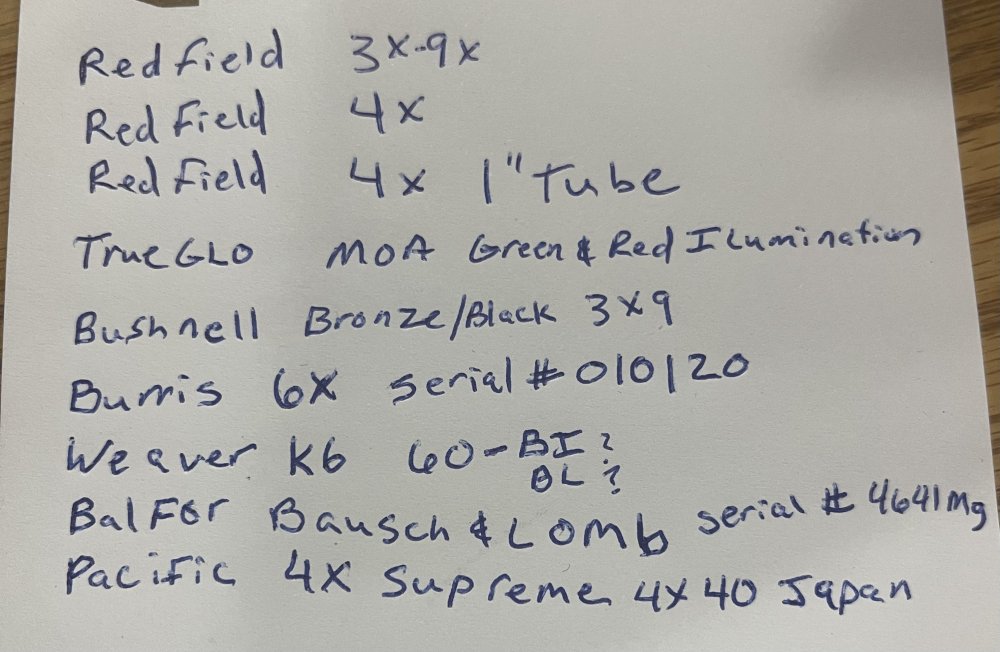 Redfield 3x-9x
Redfield 4x
Redfield 4x 1" Tube
TrueGLO MOA Green & Red Ilumination
Bushnell Bronze/Black 3x9
Burris 6x serial # 010120
Weaver K6 60-BI?
BL?
BalFor Bausch & Lomb serial # 4641Mg
Pacific 4x Supreme 4x40 Japan